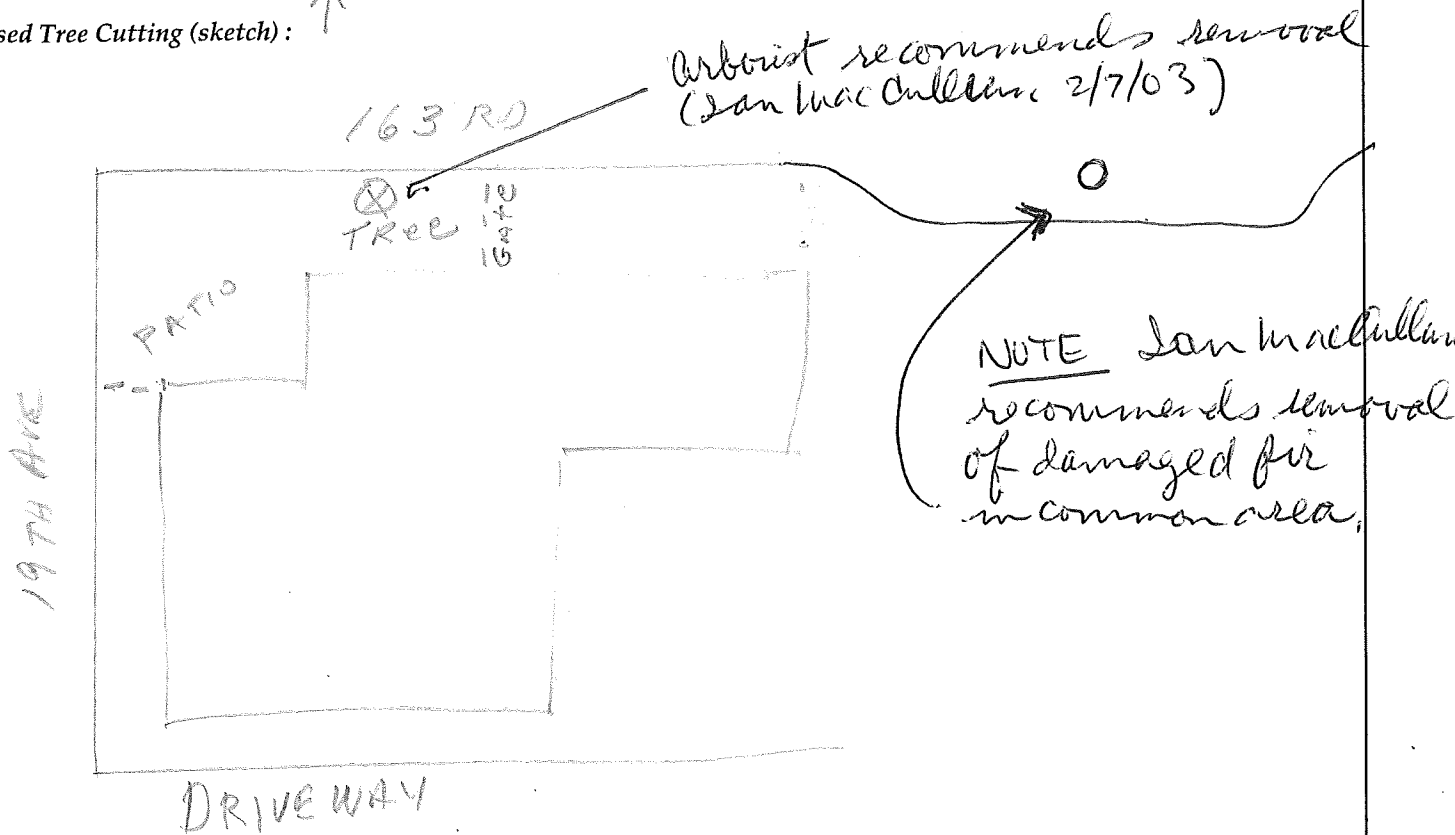 sed Tree Cutting (sketch) :
Arborist recommends removal
(Ian MacCullum 2/7/03)
163 RD
TRee
Gate
PATIO
NOTE Ian MacCullum
recommends removal
of damaged fir
in common area.
19TH AVE
DRIVEWAY